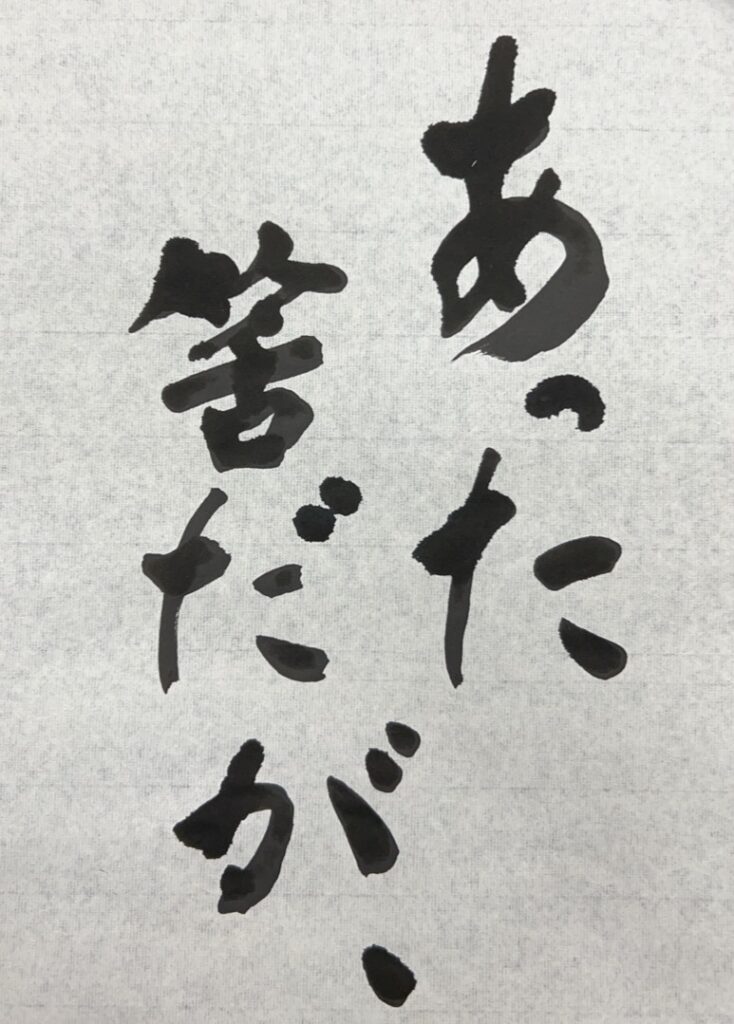 あった
筈だが、